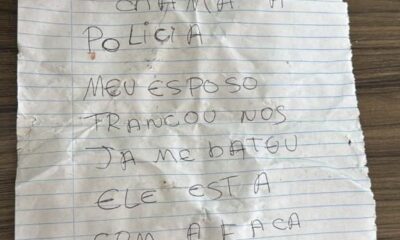 CHAMA A
POLICIA
MEU ESPOSO
TRANCOU NOS
JA ME BATEU
ELE ESTA
COM A FACA